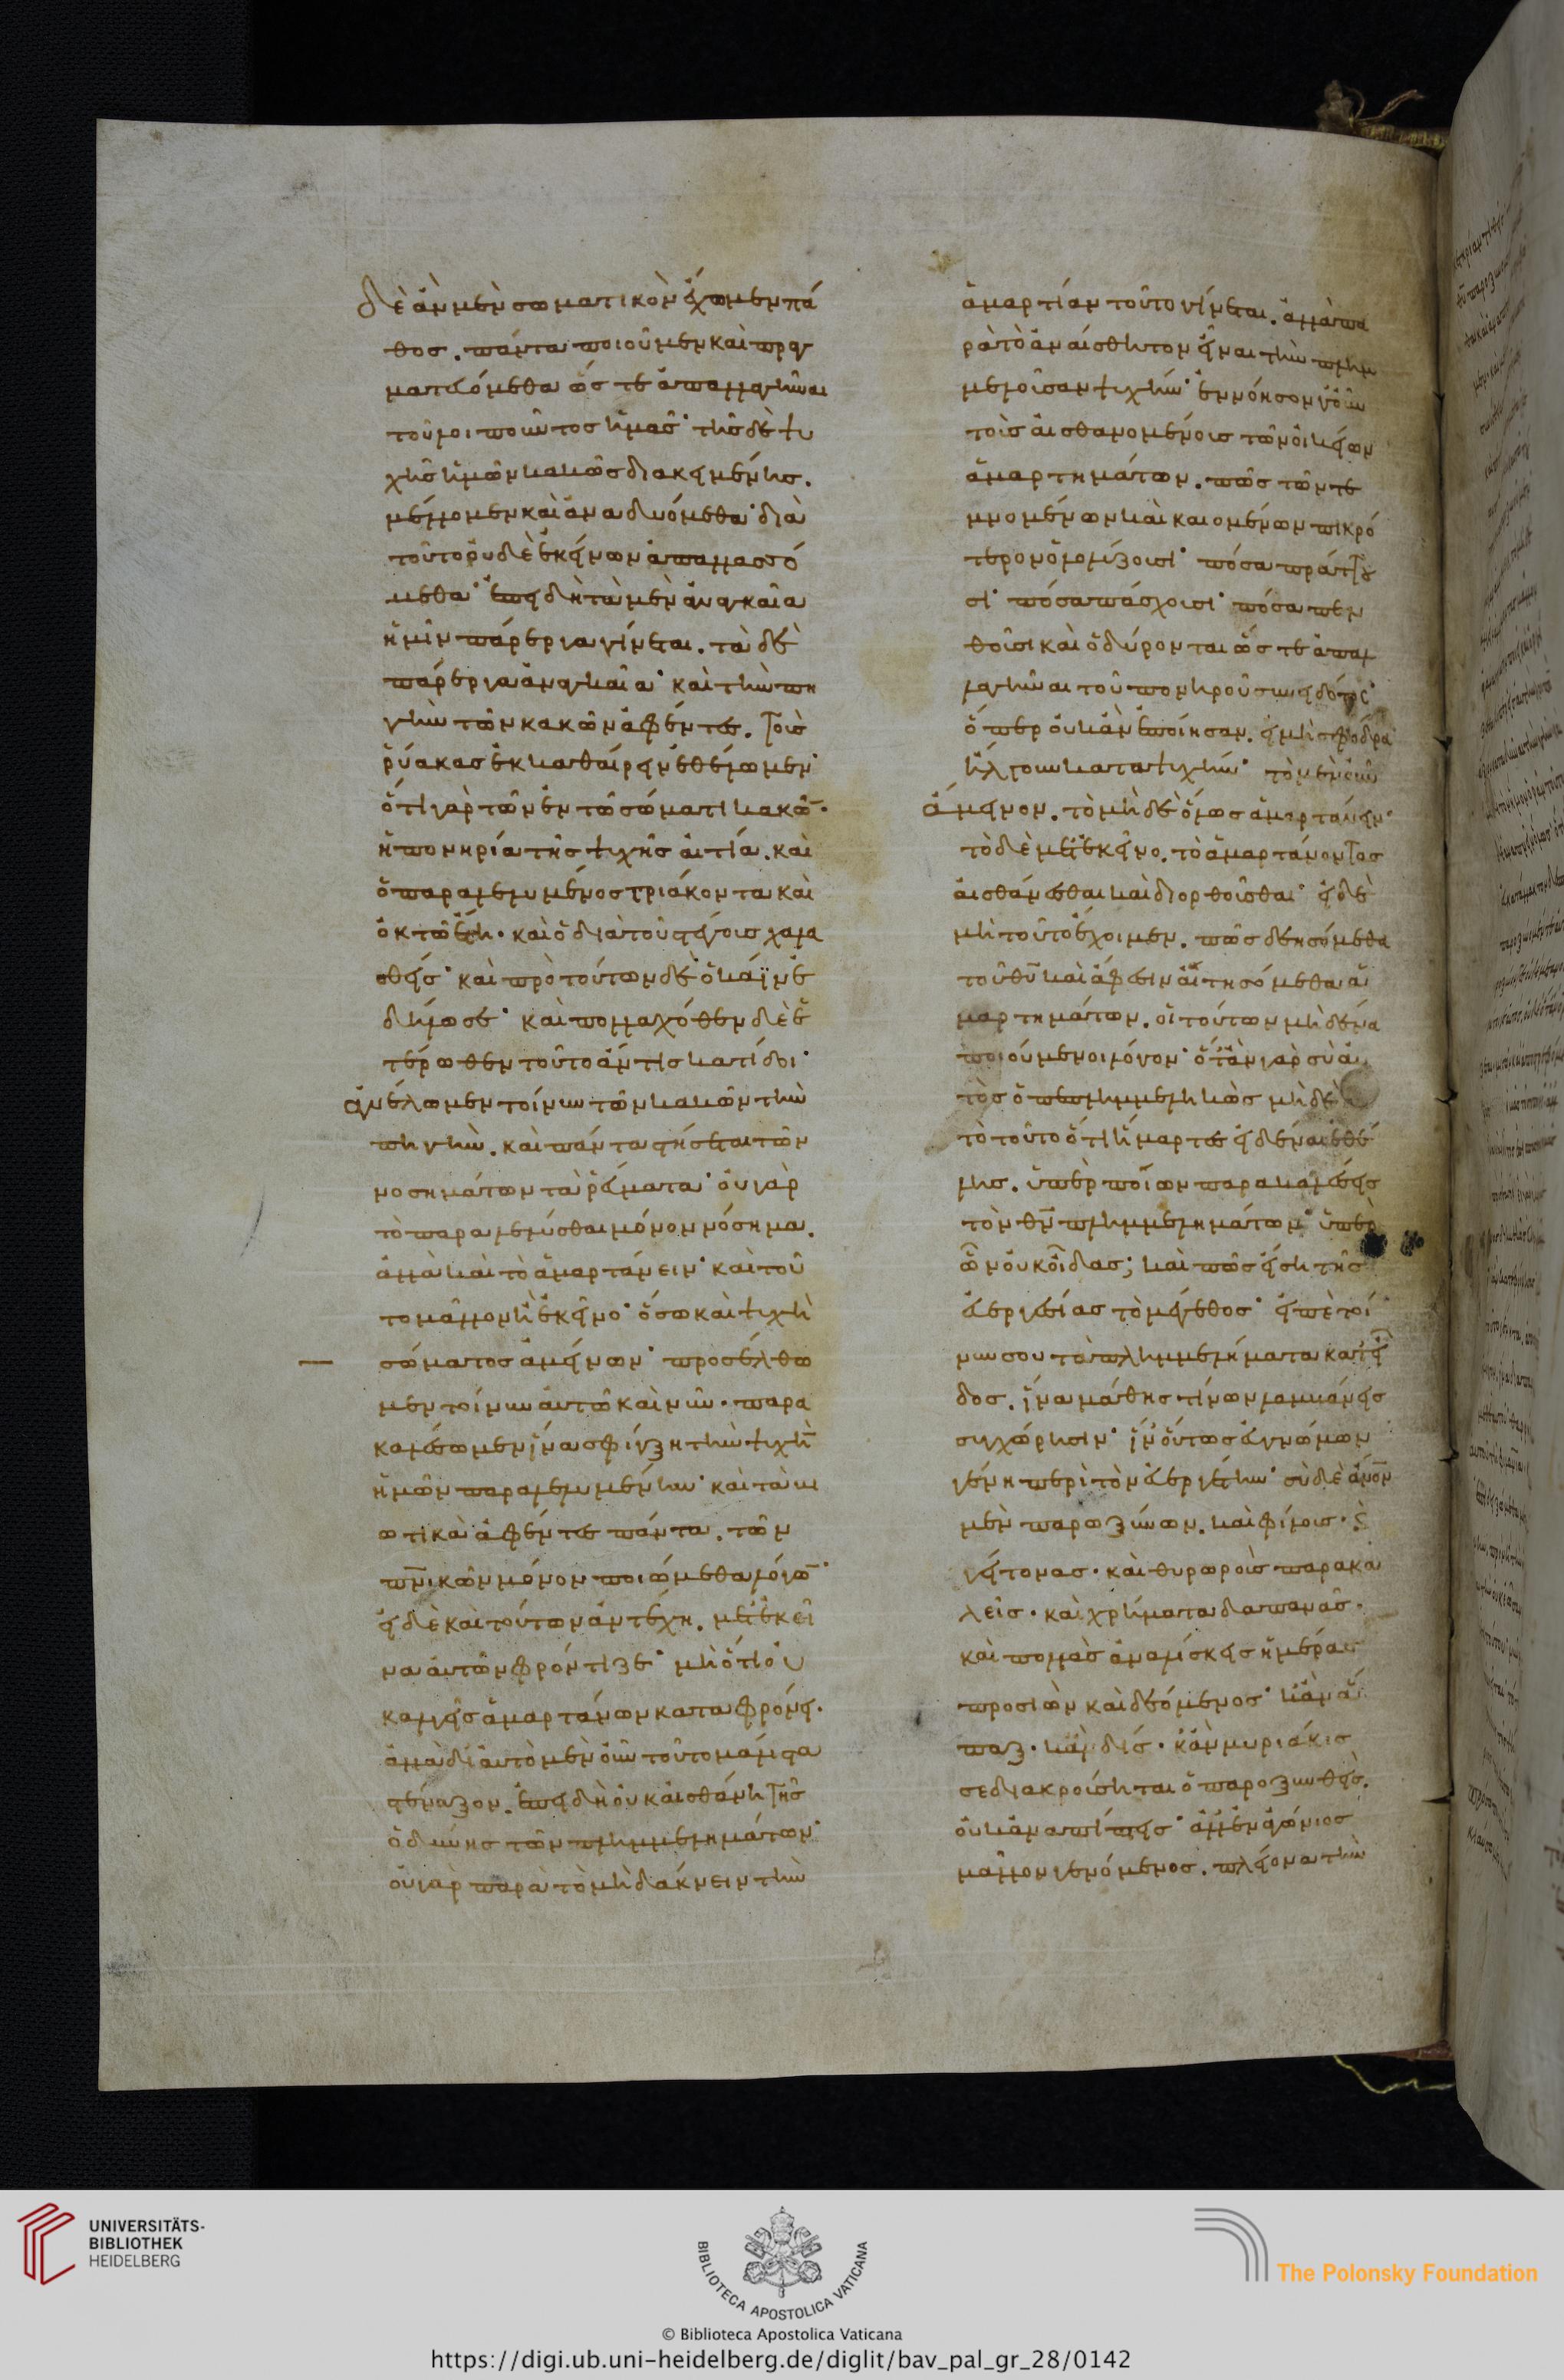 δὲ ἂν μὲν σωματικὸν ἔχωμεν πά
θος. πάντα ποιοῦμεν καὶ πραγ
ματευόμεθα ὥστε ἀπαλλαγῆναι
τοῦ λυποῦντος ἡμᾶς· τῆς δὲ ψυ
χῆς ἡμῶν κακῶς διακειμένης.
μέλλομεν καὶ ἀναδυόμεθα· διὰ
τοῦτο οὐδὲ ἐκείνων ἀπαλλασσό
μεθα· ἐπειδὴ τὰ μὲν ἀναγκαῖα
ἡμῖν πάρεργα γίνεται. τὰ δὲ
πάρεργα ἀναγκαῖα· καὶ τὴν πη
γὴν τῶν κακῶν ἀφέντες. τοὺς
ῥύακας ἐκκαθαίρειν ἐθέλομεν·
ὅτι γὰρ τῶν ἐν τῶ σώματι κακῶν·
ἡ πονηρία τῆς ψυχῆς αἰτία. καὶ
ὁ παραλελυμένος τριάκοντα καὶ
ὀκτὼ ἔτη. καὶ ὁ διὰ τοῦ στέγους χαλα
σθείς· καὶ πρὸ τούτων δὲ ὁ κάϊν ἐ
δήλωσε· καὶ πολλαχόθεν δὲ ἑ
τέρωθεν τοῦτο ἄν τις κατίδοι·
ἀνέλωμεν τοίνυν τῶν κακῶν τὴν
πηγὴν. καὶ πάντα στήσεται τῶν
νοσημάτων τὰ ῥεύματα· οὐ γὰρ
τὸ παραλελύσθαι μόνον νόσημα.
ἀλλὰ καὶ τὸ ἁμαρτάνειν· καὶ τοῦ
το μᾶλλον ἢ ἐκεῖνο· ὅσω καὶ ψυχὴ
σώματος ἀμείνων· προσέλθω
μεν τοίνυν αὐτῶ καὶ νῦν. παρα
καλέσωμεν ἵνα σφίγξη τὴν ψυχὴν
ἡμῶν παραλελυμένην· καὶ τὰ βι
ωτικὰ ἀφέντες πάντα. τῶν
πνικῶν μόνον ποιώμεθα λόγον·
εἰ δὲ καὶ τούτων ἀντέχη. μετ' ἐκεῖ
να αὐτῶν φρόντιζε· μὴ ὅτι οὐ
κ ἀλγεῖς ἁμαρτάνων καταφρόνει.
ἀλλὰ δι' αὐτὸ μὲν οὖν τοῦτο μάλιστα
στέναξον. ἐπειδὴ οὐκ αἰσθάνη τῆς
ὀδύνης τῶν πλημμελημάτων·
οὐ γὰρ παρὰ τὸ μὴ δάκνειν τὴν
ἁμαρτίαν τοῦτο γίνεται. ἀλλὰ πα
ρὰ τὸ ἀναίσθητον εἶναι τὴν πλημ
μελοῦσαν ψυχήν· ἐννόησον γοῦν
τοὺς αἰσθανομένους τῶν οἰκείων
ἁμαρτημάτων. πῶς τῶν τε
μνομένων καὶ καιομένων πικρό
τερον ὀλολύζουσι· πόσα πράττου
σι· πόσα πάσχουσι· πόσα πεν
θοῦσι καὶ ὀδύρονται ὥστε ἀπαλ
λαγῆναι τοῦ πονηροῦ συνειδότος·
ὅπερ οὐκ ἂν ἐποίησαν. εἰ μὴ σφόδρα
ἤλγουν κατὰ ψυχήν· τὸ μὲν οὖν
ἄμεινον. τὸ μὴ δὲ ὅλως ἁμαρτάνειν·
τὸ δὲ μετ' ἐκεῖνο. τὸ ἁμαρτάνοντας
αἰσθάνεσθαι καὶ διορθοῦσθαι· εἰ δὲ
μὴ τοῦτο ἔχοιμεν. πῶς δεησόμεθα
τοῦ θυ καὶ ἄφεσιν αἰτησόμεθα ἁ
μαρτημάτων. οἱ τούτων μηδένα
ποιούμενοι λόγον· ὅταν γὰρ σὺ αὐ
τὸς ὁ πεπλημμεληκὼς μὴ δὲ
τὸ τοῦτο ὅτι ἥμαρτες εἰδέναι ἐθέ
λης. ὑπὲρ ποίων παρακαλέσεις
τὸν θν πλημμελημάτων· ὑπὲρ
ὧν οὐκ οἶδας; καὶ πῶς εἴση τῆς
εὐεργεσίας τὸ μέγεθος· εἰπὲ τοί
νυν σου τὰ πλημμελήματα κατ' εἶ
δος. ἵνα μάθης τίνων λαμβάνεις
συγχώρησιν· ἵν' οὕτως εὐγνώμων
γένη περὶ τὸν εὐεργέτην· σὺ δὲ ἄνον
μὲν παροξύνων. καὶ φίλους. καὶ
γείτονας. καὶ θυρωροὺς παρακα
λεῖς. καὶ χρήματα δαπανᾶς.
καὶ πολλὰς ἀναλίσκεις ἡμέρας
προσιὼν καὶ δεόμενος· κἂν ἅ
παξ. κἂν δίς. κἂν μυριάκις
σε διακρούσηται ὁ παροξυνθείς.
οὐκ ἀναπίπτεις· ἀλλ' ἐναγώνιος
μᾶλλον γενόμενος. πλείονα τὴν
UNIVERSITÄTS-
BIBLIOTHEK
HEIDELBERG
BIBLIOTECA APOSTOLICA VATICANA
The Polonsky Foundation
© Biblioteca Apostolica Vaticana
https://digi.ub.uni-heidelberg.de/diglit/bav_pal_gr_28/0142